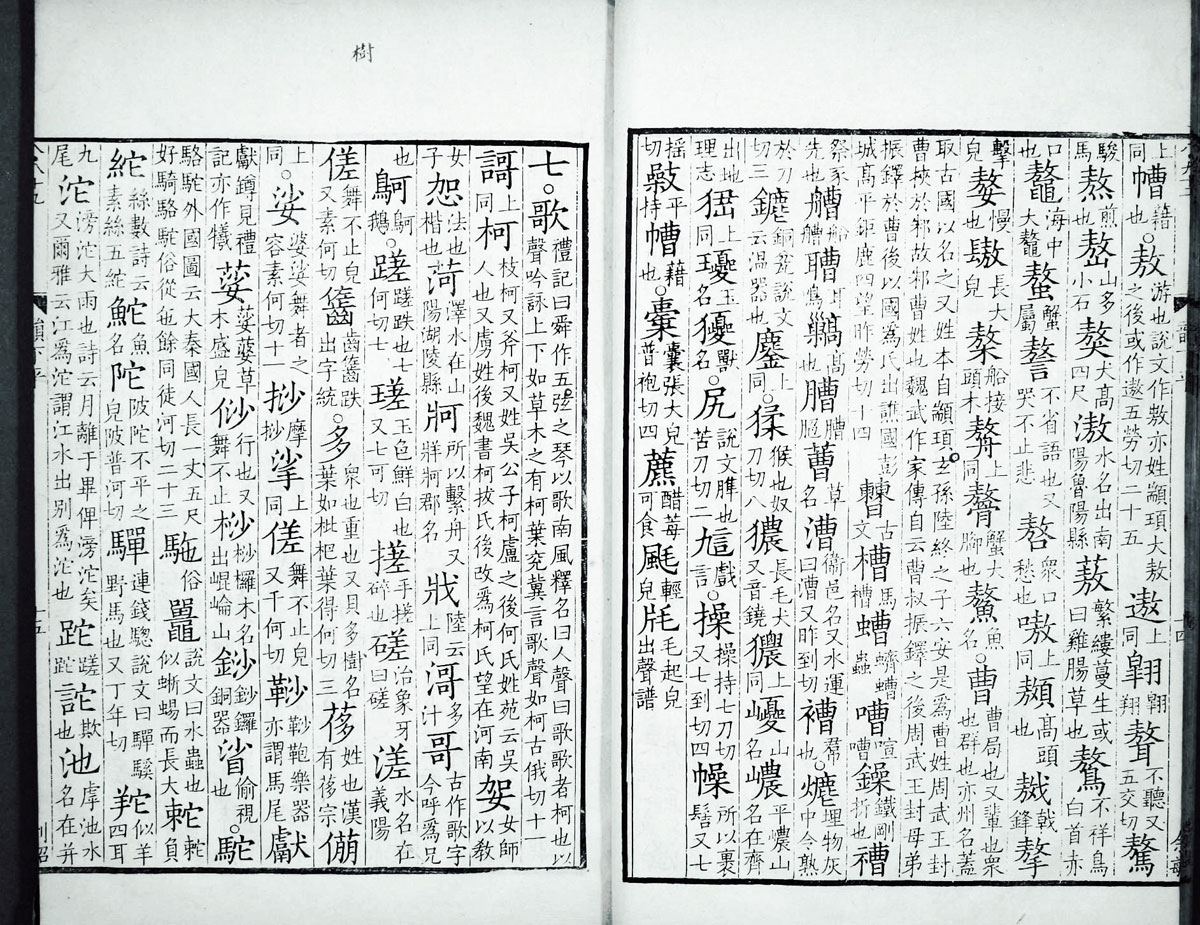 上同㠏藉也○敖游也說文作敖亦姓顓頊大敖之後或作遨五勞切二十五遨上同翶翶翔聱不聽又五交切驁
駿馬熬煎也嶅山多小石獒犬高四尺滶水名出南陽魯陽縣蔜繁縷蔓生或曰雞腸草也鷔不祥鳥白首亦
口鼇海中大鼇螯蟹屬謷不省語也又哭不止悲嗸衆口愁也嗷上同䫨高頭也戟鋒摮
擊嫯慢皃長大皃船接頭木上同蟹大腳也魚名○曹曹局也又輩也衆也群也亦州名蓋
取古國以名之又姓本自顓頊玄孫陸終之子六安是爲曹姓周武王封曹挾於邾故邾曹姓也魏武作家傳自云曹叔振鐸之後周武王封母弟
振鐸於曹後以國爲氏出譙國彭城高平鉅鹿四望昨勞切十四古文槽馬槽螬蠐螬蟲嘈喧嘈鐵剛折也
祭豕先也艚船艚耳鳴高也蓸草名漕衞邑名又水運曰漕又昨到切褿帬也○爊埋物灰中令熟
於刀切三銅瓫說文云温器也鏖上同○猱猴也奴刀切八獿長毛犬又音鐃獶上同巎山名峱平峱山名在齊
出地理志上同瓇玉名獸名○尻說文䏶也苦刀切二戲言○操操持七刀切又七到切四幧所以裹髻又七
摇切平持㠏藉也○橐囊張大皃普袍切四藨醋莓可食輕毛起皃出聲譜
七○歌禮記曰舜作五弦之琴以歌南風釋名曰人聲曰歌歌者柯也以聲吟詠上下如草木之有柯葉兖冀言歌聲如柯古俄切十一
謌上同柯枝柯又斧柯又姓吳公子柯盧之後何氏姓苑云吳人也又虜姓後魏書柯拔氏後改爲柯氏望在河南妿女師以教
女子㤎法也楷也菏澤水在山陽湖陵縣牁所以繫舟又牂牁郡名陸云上同渮多汁哥古作歌字今呼爲兄
也鴚鴚鵝○蹉蹉跌也七何切七瑳玉色鮮白也又七可切搓手搓碎也磋治象牙曰磋溠水名在義陽
傞舞不止皃又素何切齒跌出字統○多衆也重也又貝多樹名葉如枇杷葉得何切三茤姓也漢有茤宗
上同○娑婆娑舞者之容素何切十一挱摩挱挲上同傞舞不止皃又千何切樂器亦謂馬尾獻
獻鐏見禮記亦作犧草木盛皃舞不止行也又木名出崐崘山銅器偷視也○駝
駱駝外國圖云大秦國人長一丈五尺好騎駱駝俗從㐌餘同徒河切二十三駞俗鼉說文曰水蟲也似蜥蜴而長大負
紽絲數詩云素絲五紽鮀魚名陀陂陀不平之皃陂普河切驒連錢驄說文曰驒騱野馬也又丁年切似羊四耳
九尾沱滂沱大雨也詩云月離于畢俾滂沱矣又爾雅云江爲沱謂江水出别爲沱也跎蹉跎詑欺也池虖池水名在并
樹